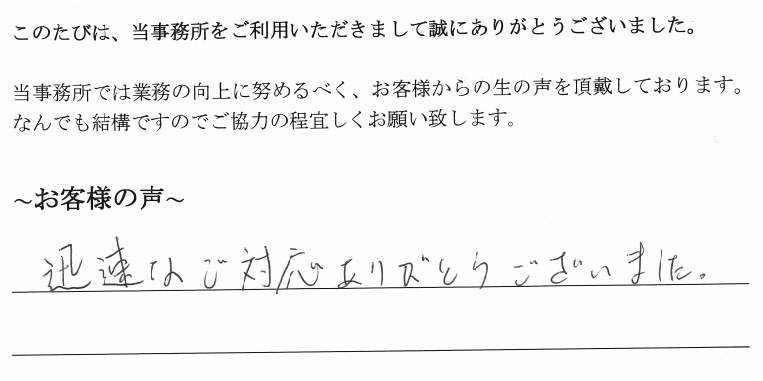 このたびは、当事務所をご利用いただきまして誠にありがとうございました。
当事務所では業務の向上に努めるべく、お客様からの生の声を頂戴しております。
なんでも結構ですのでご協力の程宜しくお願い致します。
~お客様の声~
迅速なご対応ありがとうございました。